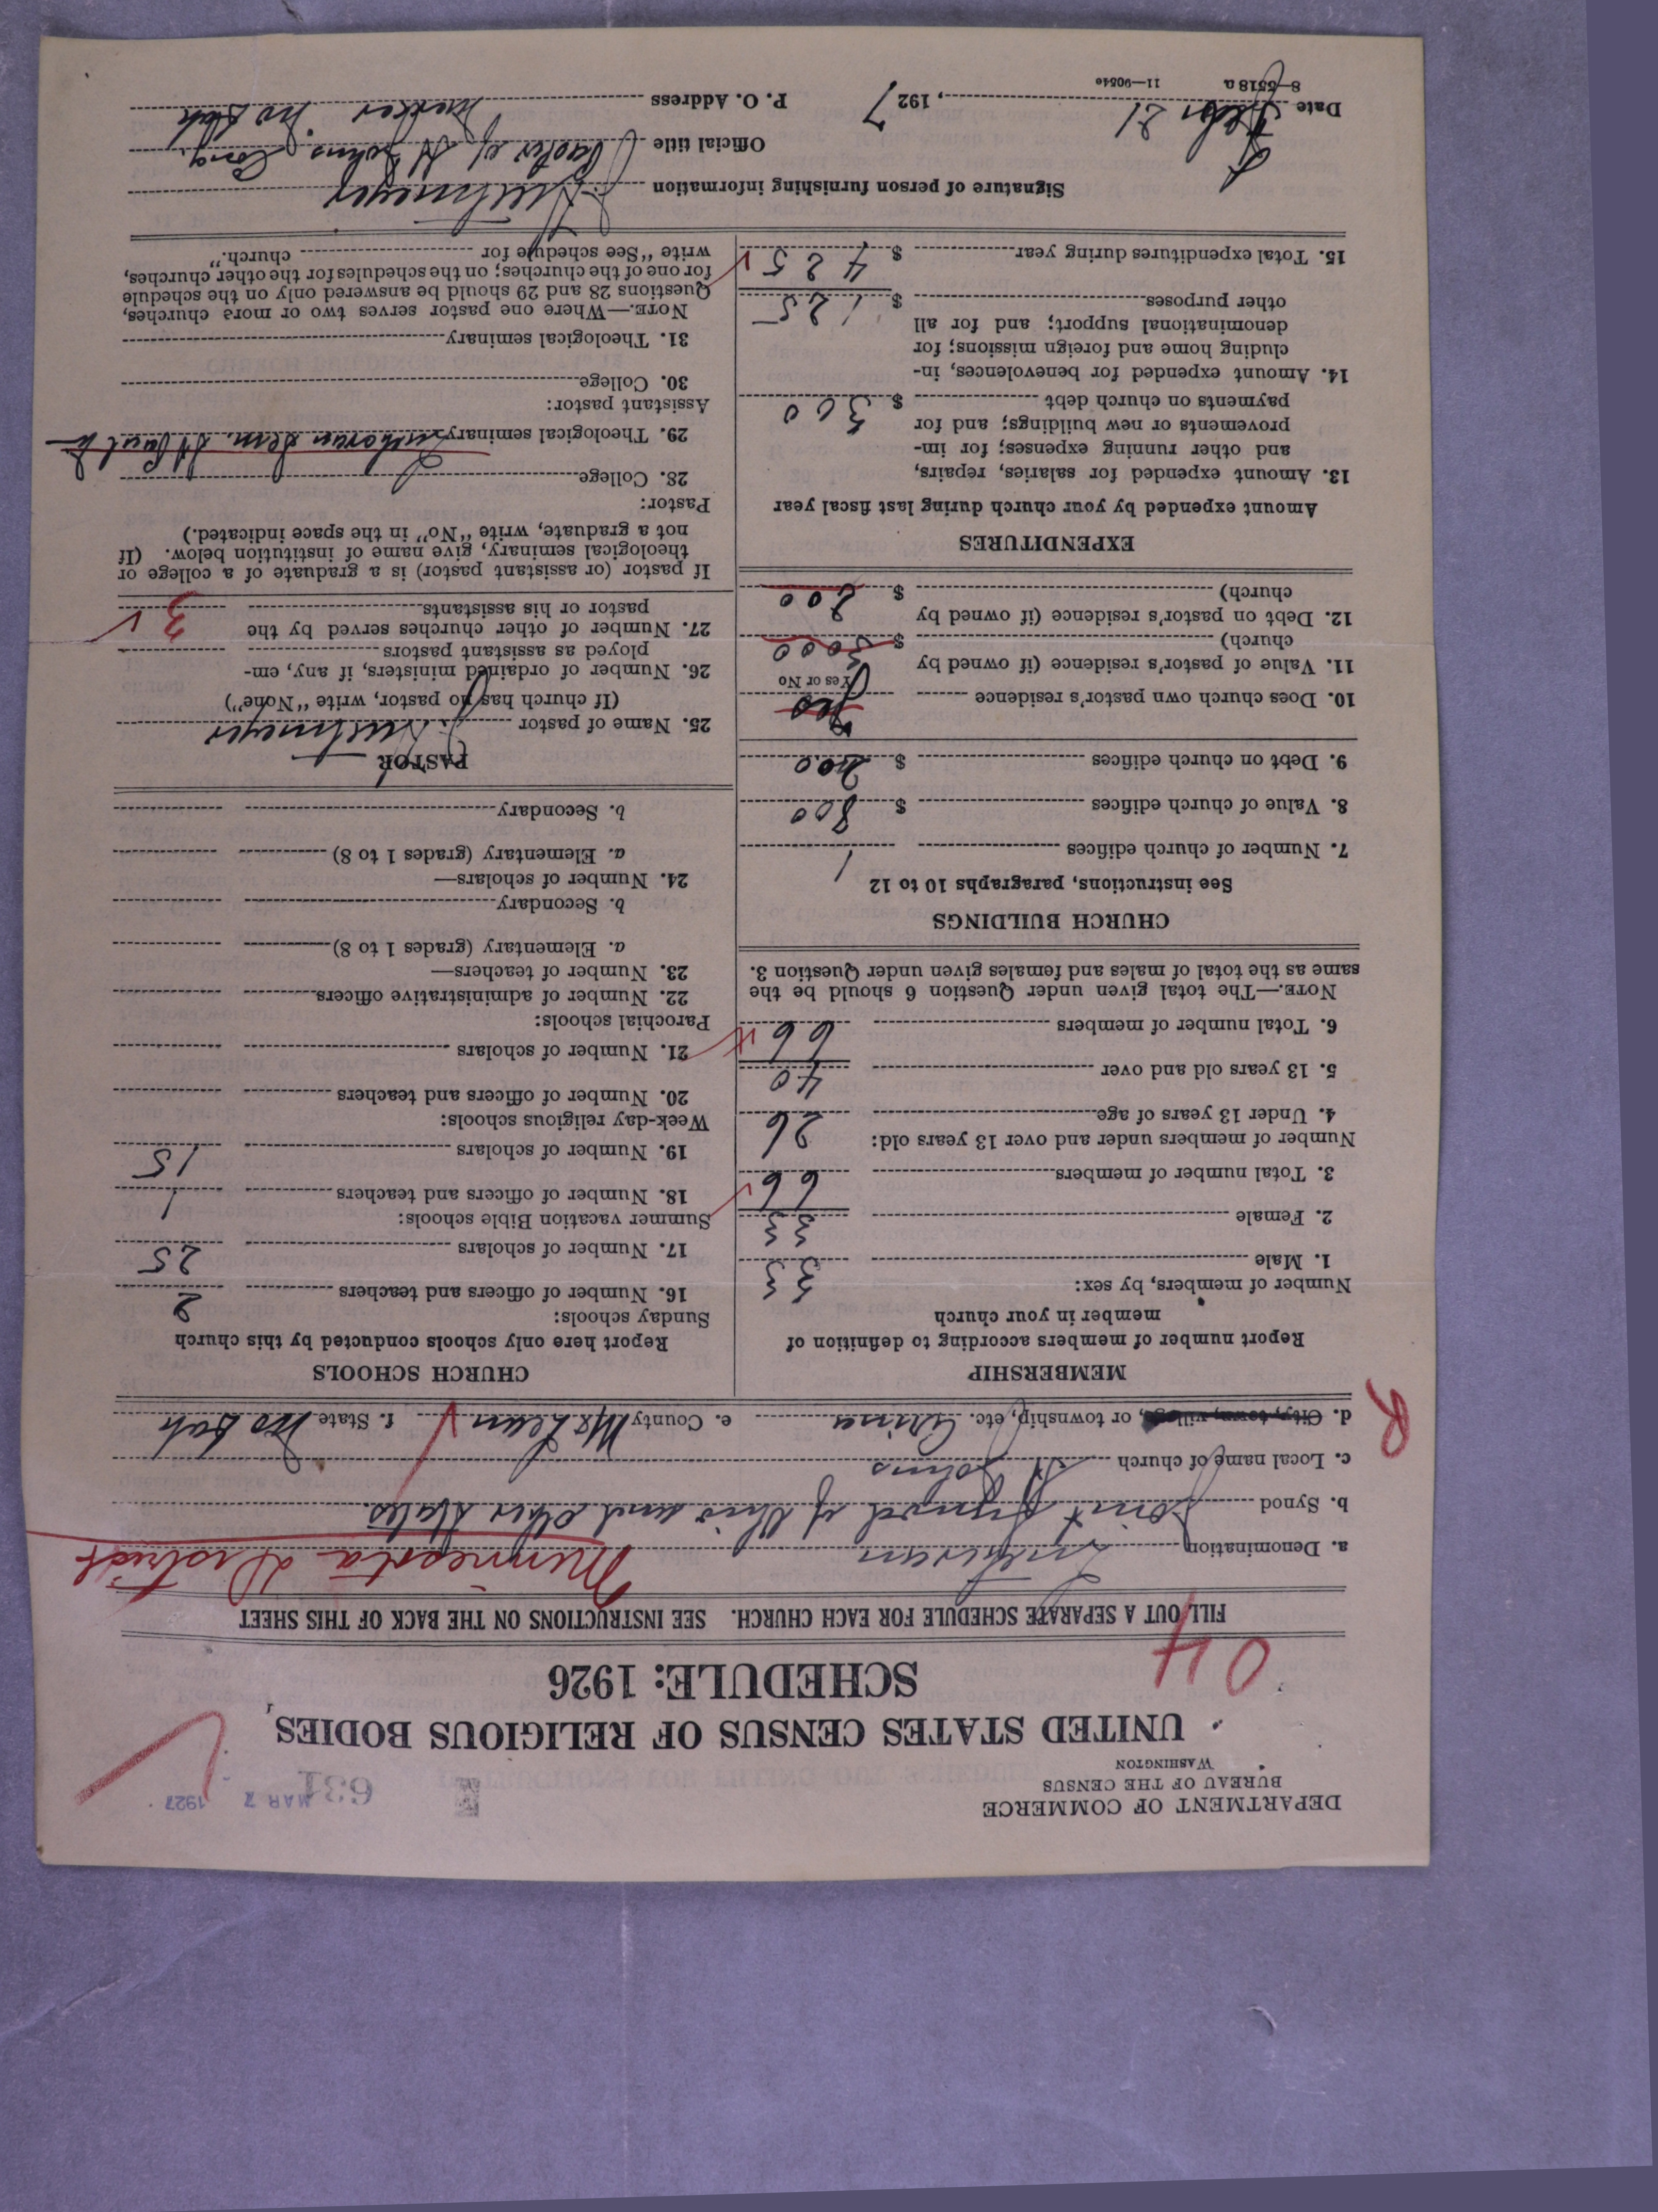 DEPARTMENT OF COMMERCE
BUREAU OF THE CENSUS
WASHINGTON
631
MAR 7 1927
UNITED STATES CENSUS OF RELIGIOUS BODIES
SCHEDULE: 1926
04
FILL OUT A SEPARATE SCHEDULE FOR EACH CHURCH. SEE INSTRUCTIONS ON THE BACK OF THIS SHEET
a. Denomination Lutheran Minnesota District
b. Synod Joint Synod of Ohio and other States
c. Local name of church St Johns
d. City, town, village, or township, etc. e. County McLean f. State No Dak
R
MEMBERSHIP
Report number of members according to definition of
member in your church
Number of members, by sex:
1. Male 33
2. Female 33
3. Total number of members 66
Number of members under and over 13 years old:
4. Under 13 years of age 26
5. 13 years old and over 40
6. Total number of members 66
NOTE.—The total given under Question 6 should be the
same as the total of males and females given under Question 3.
CHURCH BUILDINGS
See instructions, paragraphs 10 to 12
7. Number of church edifices 1
8. Value of church edifices $ 800
9. Debt on church edifices $ 200
10. Does church own pastor's residence Yes
Yes or No
11. Value of pastor's residence (if owned by
church) $ 3000
12. Debt on pastor's residence (if owned by
church) $ 800
EXPENDITURES
Amount expended by your church during last fiscal year
13. Amount expended for salaries, repairs,
and other running expenses; for im-
provements or new buildings; and for
payments on church debt $ 300
14. Amount expended for benevolences, in-
cluding home and foreign missions; for
denominational support; and for all
other purposes $ 125
15. Total expenditures during year $ 425
CHURCH SCHOOLS
Report here only schools conducted by this church
Sunday schools:
16. Number of officers and teachers 2
17. Number of scholars 25
Summer vacation Bible schools:
18. Number of officers and teachers 1
19. Number of scholars 15
Week-day religious schools:
20. Number of officers and teachers
21. Number of scholars
Parochial schools:
22. Number of administrative officers
23. Number of teachers—
a. Elementary (grades 1 to 8)
b. Secondary
24. Number of scholars—
a. Elementary (grades 1 to 8)
b. Secondary
PASTOR
25. Name of pastor
(If church has no pastor, write "None")
26. Number of ordained ministers, if any, em-
ployed as assistant pastors
27. Number of other churches served by the
pastor or his assistants 3
If pastor (or assistant pastor) is a graduate of a college or
theological seminary, give name of institution below. (If
not a graduate, write "No" in the space indicated.)
Pastor:
28. College
29. Theological seminary Lutheran Sem. St Paul
Assistant pastor:
30. College
31. Theological seminary
NOTE.—Where one pastor serves two or more churches,
Questions 28 and 29 should be answered only on the schedule
for one of the churches; on the schedules for the other churches,
write "See schedule for church."
Signature of person furnishing information
Official title Pastor of St Johns Cong.
Date Febr 21, 1927
P. O. Address Mercer No Dak
8—5518a 11—9054c